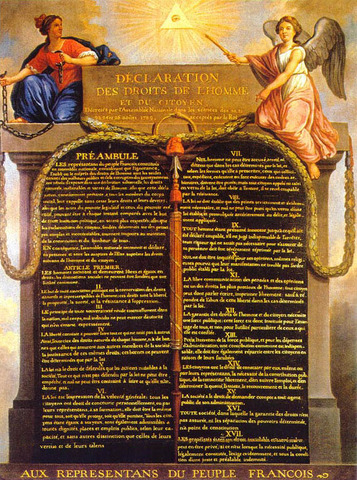 DÉCLARATION
DES DROITS DE L'HOMME
ET DU CITOYEN,
Décrétés par l'Assemblée Nationale dans les séances des 20, 21
par le Roi
PRÉAMBULE
LES représentans du peuple François, constitués
en assemblée nationale, considérant que l'ignorance,
l'oubli ou le mépris des droits de l'homme sont les seules
causes des malheurs publics
de l'homme
du corps
social, leur rappelle sans cesse leurs droits et leurs devoirs,
être à chaque instant comparés avec le but
de toute institution politique, en soient plus respectés; afin que
les réclamations des citoyens, fondées désormais sur des prin-
cipes simples et incontestables, tournent toujours au maintien
de la constitution et du bonheur de tous.
EN conséquence, l'assemblée nationale reconnoit et déclare,
en présence et sous les auspices de l'Être suprême, les droits
suivans de l'homme et du citoyen.
ARTICLE PREMIER.
LES hommes naissent et demeurent libres et égaux en
droits; les distinctions sociales ne peuvent être fondées que sur
l'utilité commune.
II.
LE but de toute association politique est la conservation des droits
naturels et imprescriptibles de l'homme; ces droits sont la liberté,
la propriété, la sureté, et la résistance à l'oppression.
LE principe de toute souveraineté réside essentiellement dans
la nation, nul corps, nul individu ne peut exercer d'autorité
qui n'en émane expressément.
LA liberté consiste à pouvoir faire tout ce qui ne nuit pas à autrui
Ainsi, l'exercice des droits naturels de chaque homme, n'a de bor-
nes que celles qui assurent aux autres membres de la société
la jouissance de ces mêmes droits; ces bornes ne peuvent
être déterminées que par la loi.
LA loi n'a le droit de défendre que les actions nuisibles à la
société. Tout ce qui n'est pas défendu par la loi ne peut être
empêché, et nul ne peut être contraint à faire ce qu'elle n'or-
donne pas.
VI.
LA loi est l'expression de la volonté générale; tous les
citoyens ont droit de concourir personnellement, ou par
leurs représentans, à sa formation; elle doit être la même
pour tous, soit qu'elle protège, soit qu'elle punisse. Tous les cito-
yens étant égaux à ses yeux, sont également admissibles à
toutes dignités, places et emplois publics, selon leur ca-
pacité, et sans autres distinctions que celles de leurs
vertus et de leurs talens
VII.
NUL homme ne peut être accusé, arrêté, ni
détenu que dans les cas déterminés par la loi, et
selon les formes qu'elle a prescrites, ceux qui sollici-
tent, expédient, exécutent ou font exécuter des ordres ar-
bitraires, doivent être punis; mais tout citoyen appelé ou saisi
en vertu de la loi, doit obéir à l'instant, il se rend coupable
par la résistance.
VIII.
LA loi ne doit établir que des peines strictement et évidem-
ment nécessaires, et nul ne peut être puni qu'en vertu d'une
loi établie et promulguée antérieurement au délit, et légale-
ment appliquée.
IX.
TOUT homme étant présumé innocent jusqu'à ce qu'il ait
été déclaré coupable, s'il est jugé indispensable de l'arrêter,
tout rigueur qui ne serait pas nécessaire pour s'assurer de
sa personne doit être sévèrement réprimée par la loi.
X.
NUL ne doit être inquiété pour ses opinions, mêmes religi-
euses, pourvu que leur manifestation ne trouble pas l'ordre
public établi par la loi.
XI.
LA libre communication des pensées et des opinions
est un des droits les plus précieux de l'homme; tout citoyen
peut donc parler, écrire, imprimer librement, sauf à ré-
pondre de l'abus de cette liberté dans les cas déterminés
par la loi.
XII.
LA garantie des droits de l'homme et du citoyen nécessite
une force publique; cette force est donc instituée pour l'avan-
tage de tous, et non pour l'utilité particulière de ceux à qui
elle est confiée.
XIII.
Pour l'entretien de la force publique, et pour les dépenses
d'administration, une contribution commune est indispen-
sable; elle doit être également répartie entre les citoyens
en raison de leurs facultés.
XIV.
LES citoyens ont le droit de constater par eux mêmes ou
par leurs représentans, la nécessité de la contribution pub-
lique, de la consentir librement, d'en suivre l'emploi, et d'en
déterminer la quotité, l'assiette, le recouvrement et la durée.
XV.
LA société a le droit de demander compte à tout agent
public de son administration.
XVI.
TOUTE société, dans laquelle la garantie des droits n'est
pas assurée, ni la séparation des pouvoirs déterminée,
n'a point de constitution.
XVII.
LES propriétés étant un droit inviolable et sacré, nul ne
peut en être privé, si ce n'est lorsque la nécessité publique,
légalement constatée, l'exige évidemment, et sous la condi-
tion d'une juste et préalable indemnité.
AUX REPRESENTANS DU PEUPLE FRANCOIS